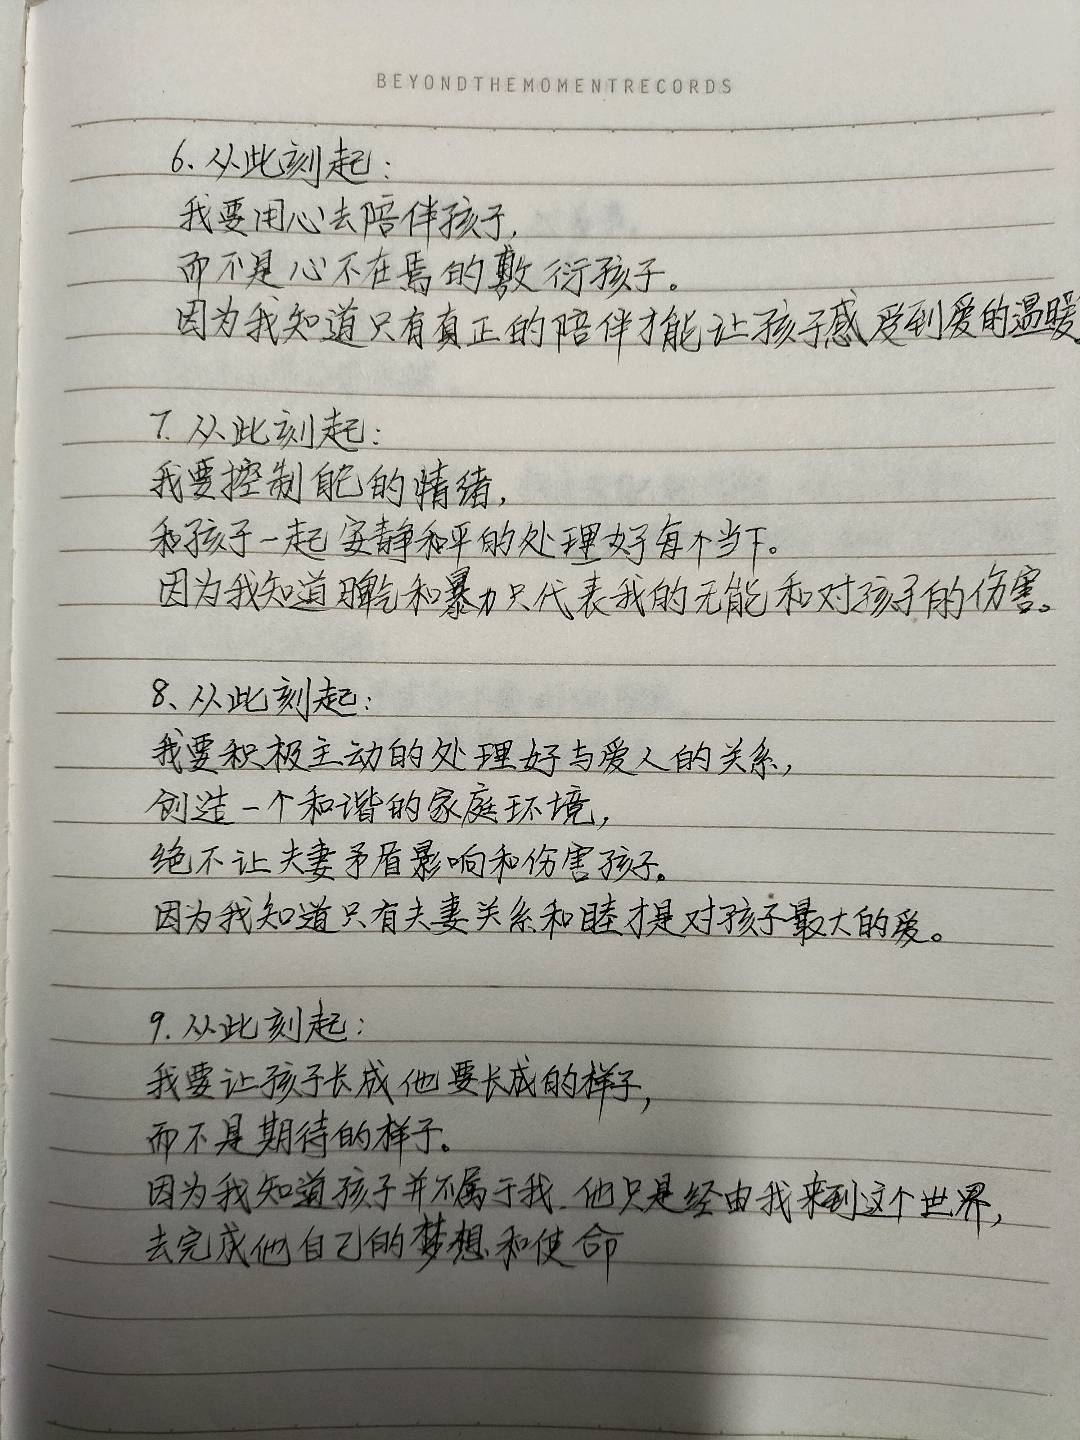 BEYONDTHEMOMENTRECORDS
6、从此刻起：
我要用心去陪伴孩子，
而不是心不在焉的敷衍孩子。
因为我知道只有真正的陪伴才能让孩子感受到爱的温暖。
7. 从此刻起：
我要控制自己的情绪，
和孩子一起安静和平的处理好每个当下。
因为我知道和暴力只代表我的无能和对孩子的伤害。
8、从此刻起：
我要积极主动的处理好与爱人的关系，
创造一个和谐的家庭环境，
绝不让夫妻矛盾影响和伤害孩子。
因为我知道只有夫妻关系和睦才是对孩子最大的爱。
9. 从此刻起：
我要让孩子长成他要长成的样子，
而不是期待的样子。
因为我知道孩子并不属于我、他只是经由我来到这个世界，
去完成他自己的梦想和使命